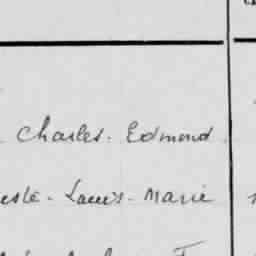 Charles-Edmond
este-Louis-Marie